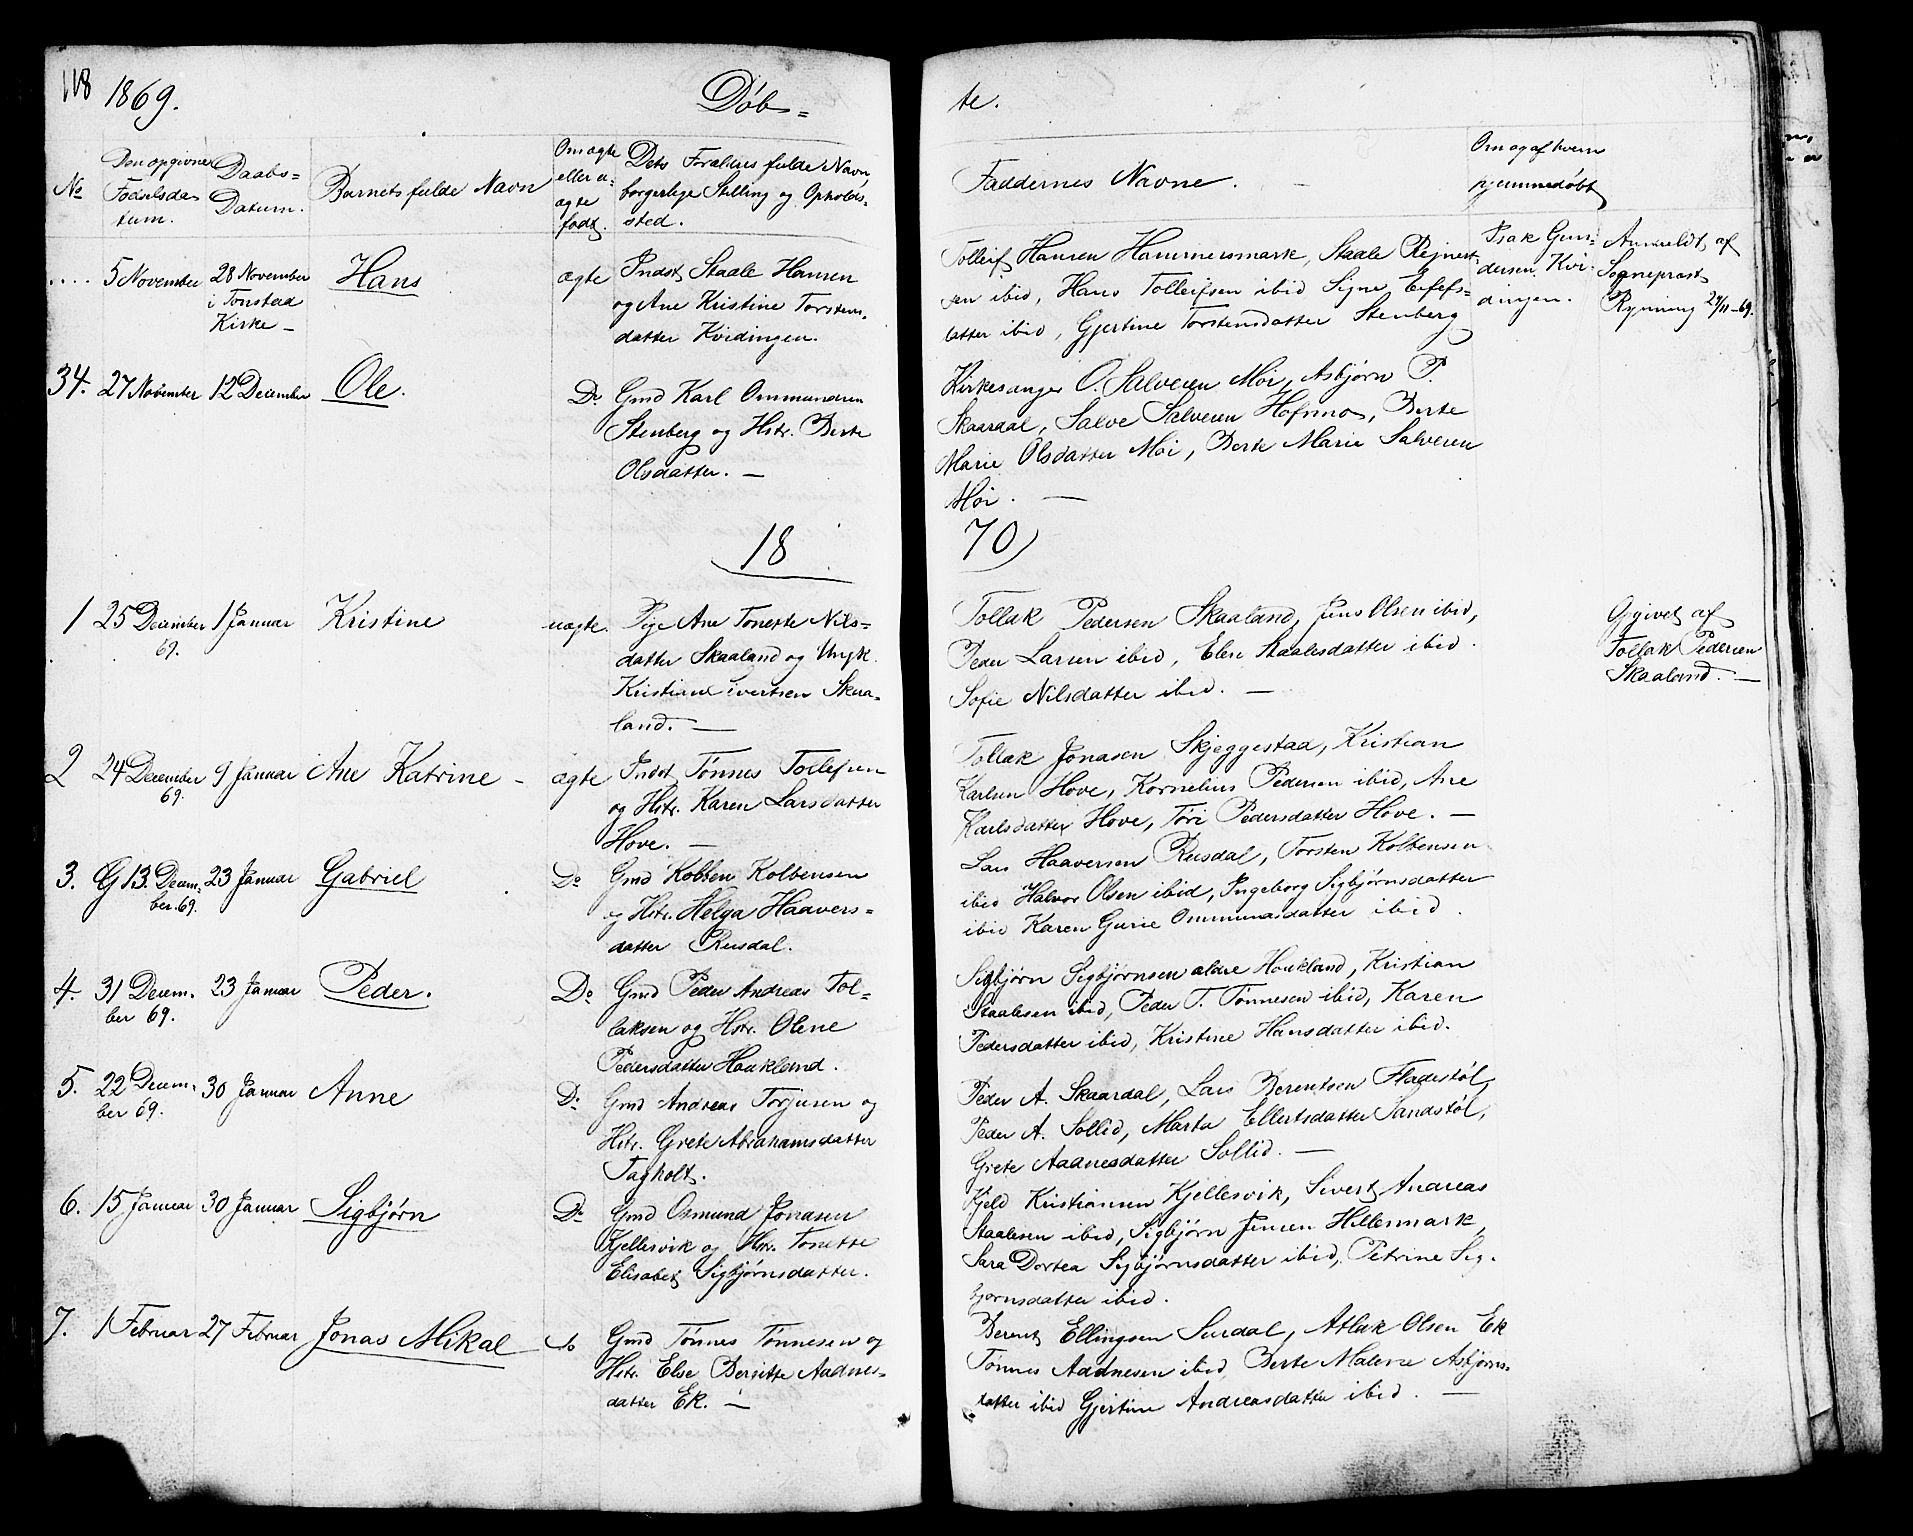 118 1869. Døb= te.
No
Den opgivne
Fødselsda-
tum.
Daabs-
Datum.
Barnets fulde Navn
Om ægte
eller u-
ægte
født.
Dets Forældres fulde Navn
borgerlige Stilling og Opholds-
sted.
Faddernes Navne.
Om og af hvem
hjemmedøbt
....
5 November
28 November
i Tonstad
Kirke -
Hans
ægte
Indst. Staale Hansen
og Ane Kristine Torstens-
datter Kvidingen.
Tolleif Hansen Hamersmark, Staale Rejnert-
sen ibid, Hans Tolleifsen ibid Signe
datter ibid, Gjertine Torstensdatter Stenberg
Isak Gun-
dersen Kvi-
dingen.
Anmeldt af
Sogneprest
Rynning 29/11-69.
34.
27 November
12 December
Ole.
Do
Gmd Karl Ommundsen
Stenberg og Hstr. Berte
Olsdatter. -
Kirkesanger O. Salvesen Moi, Asbjørn P.
Skaardal, Salve Salvesen Hofsmo, Berte
Marie Olsdatter Moi, Berte Marie Salvesen
Moi. -
18 70
1
25 December
69.
1 Januar
Kristine
uægte.
Pige Ane Tonette Nils=
datter Skaaland og Ungk.
Kristian Sivertsen Skaa-
land. -
Tollak Pedersen Skaaland, Jens Olsen ibid,
Peder Larsen ibid, Elen Staalesdatter ibid.
Sofie Nilsdatter ibid. -
Opgivet af
Tollak Pedersen
Skaaland. -
2
24 December
69.
9 Januar
Ane Katrine -
ægte
Indst Tønnes Tollefsen
og Hstr. Karen Larsdatter
Hove. -
Tollak Jonasen Skjeggestad, Kristian
Karlsen Hove, Kornelius Pedersen ibid, Ane
Karlsdatter Hove, Tøri Pedersdatter Hove. -
3.
G 13. Decem-
ber. 69.
23 Januar
Gabriel
Do
Gmd Kolben Kolbensen
og Hstr. Helga Haavers=
datter Rusdal.
Lars Haaversen Rusdal, Torsten Kolbensen
ibid Halvor Olsen ibid, Ingeborg Sigbjørnsdatter
ibid Karen Gurie Ommundsdatter ibid.
4.
31 Decem-
ber 69.
23 Januar
Peder.
Do
Gmd Peder Andreas Tol=
laksen og Hstr. Olene
Pedersdatter Houkland.
Sigbjørn Sigbjørnsen ældre Houkland, Kristian
Staalesen ibid, Peder T. Tønnesen ibid, Karen
Pedersdatter ibid, Kristine Hansdatter ibid.
5.
22 Decem-
ber 69.
30 Januar
Anne
Do
Gmd Andreas Torjusen og
Hstr. Grete Abrahamsdatter
Tagholt.
Peder A. Skaardal, Lars Berentsen Fladstøl,
Peder A. Sollid, Marta Ellertsdatter Sandstøl,
Grete Aadnesdatter Sollid. -
6.
15 Januar
30 Januar
Sigbjørn
Do
Gmd Osmund Jonasen
Kjellesvik og Hstr. Tonette
Elisabet Sigbjørnsdatter.
Kjeld Kristiansen Kjellesvik, Sivert Andreas
Staalesen ibid, Sigbjørn Jensen Hillesmark,
Sara Dortea Sigbjørnsdatter ibid, Petrine Sig-
bjørnsdatter ibid.
7.
1 Februar
27 Februar
Jonas Mikal
Do
Gmd Tønnes Tønnesen og
Hstr. Else Bergitte Aadnes-
datter Ek. -
Berent Ellingsen Surdal, Atlak Olsen Ek
Tønnes Aadnesen ibid, Berte Malene Asbjørns-
datter ibid Gjertine Andreasdatter ibid. -